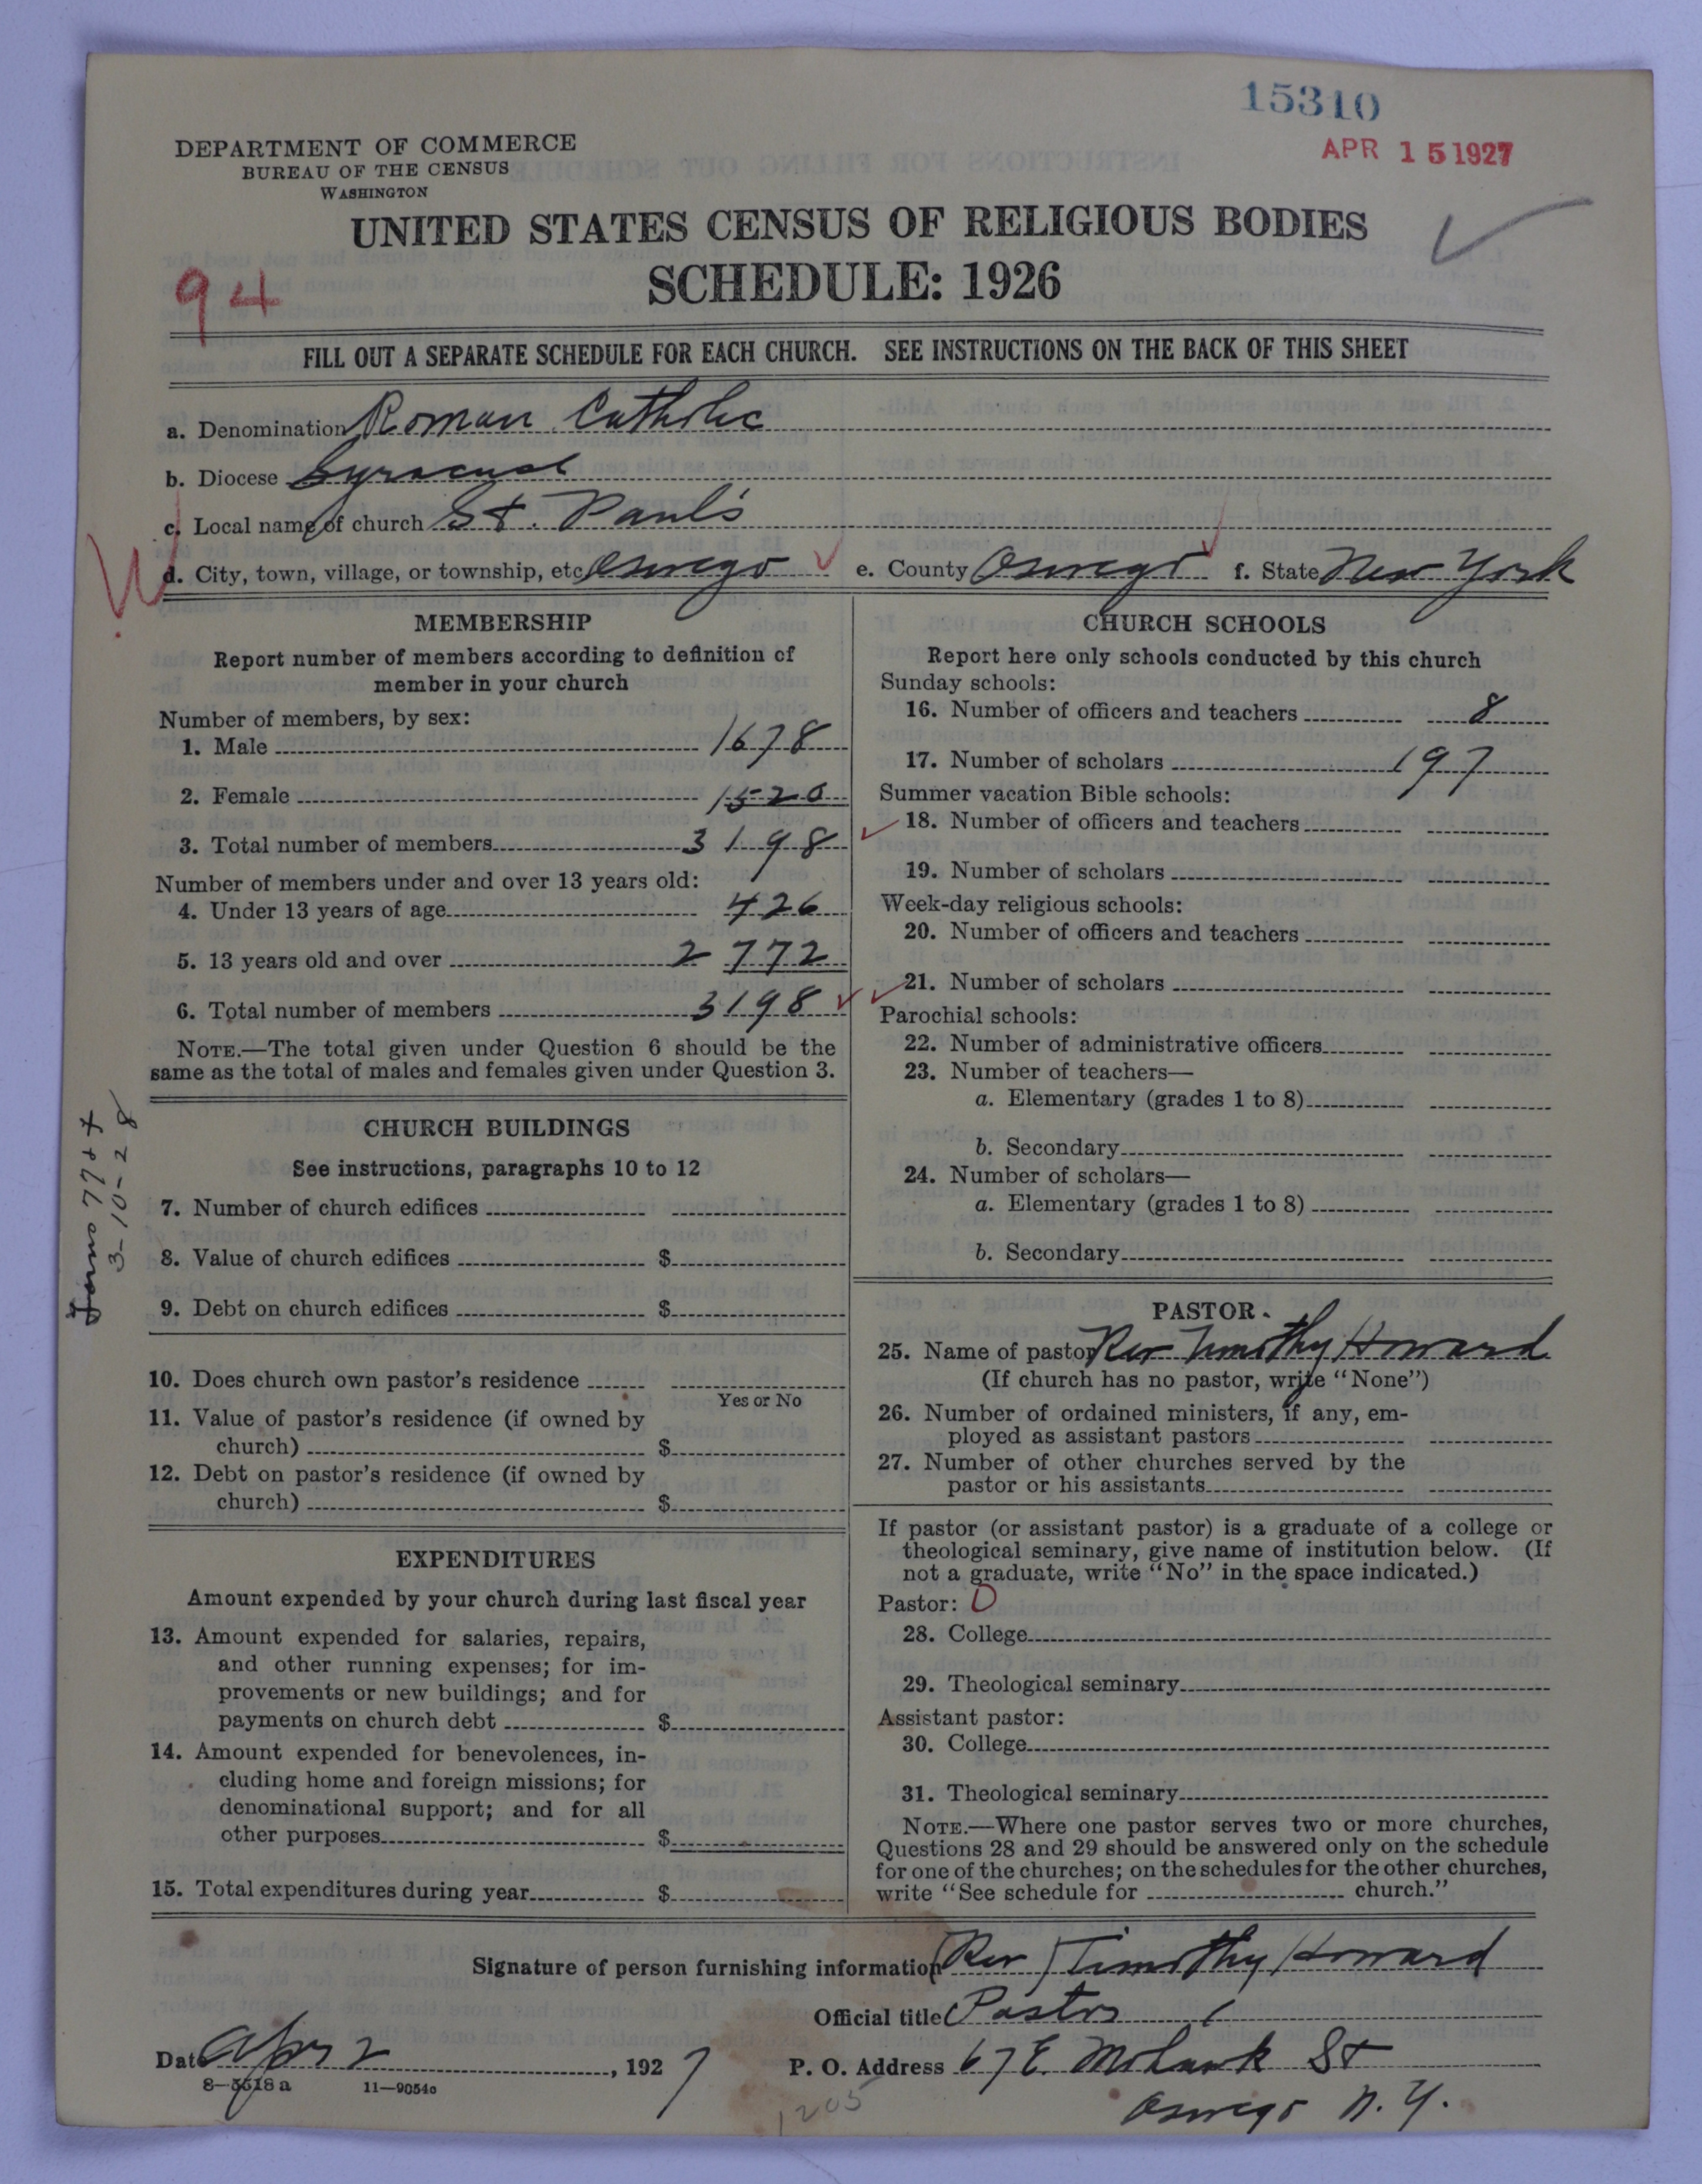 15310
APR 15 1927
DEPARTMENT OF COMMERCE
BUREAU OF THE CENSUS
WASHINGTON
UNITED STATES CENSUS OF RELIGIOUS BODIES
SCHEDULE: 1926
94
FILL OUT A SEPARATE SCHEDULE FOR EACH CHURCH. SEE INSTRUCTIONS ON THE BACK OF THIS SHEET
a. Denomination Roman Catholic
b. Diocese Syracuse
c. Local name of church St. Paul's
d. City, town, village, or township, etc. Oswego e. County Oswego f. State New York
MEMBERSHIP
Report number of members according to definition of
member in your church
Number of members, by sex:
1. Male 1678
2. Female 1520
3. Total number of members 3198
Number of members under and over 13 years old:
4. Under 13 years of age 426
5. 13 years old and over 2772
6. Total number of members 3198
NOTE.—The total given under Question 6 should be the
same as the total of males and females given under Question 3.
CHURCH BUILDINGS
See instructions, paragraphs 10 to 12
7. Number of church edifices
8. Value of church edifices $
9. Debt on church edifices $
10. Does church own pastor's residence
Yes or No
11. Value of pastor's residence (if owned by
church) $
12. Debt on pastor's residence (if owned by
church) $
EXPENDITURES
Amount expended by your church during last fiscal year
13. Amount expended for salaries, repairs,
and other running expenses; for im-
provements or new buildings; and for
payments on church debt $
14. Amount expended for benevolences, in-
cluding home and foreign missions; for
denominational support; and for all
other purposes $
15. Total expenditures during year $
3-10-28
CHURCH SCHOOLS
Report here only schools conducted by this church
Sunday schools:
16. Number of officers and teachers 8
17. Number of scholars 197
Summer vacation Bible schools:
18. Number of officers and teachers
19. Number of scholars
Week-day religious schools:
20. Number of officers and teachers
21. Number of scholars
Parochial schools:
22. Number of administrative officers
23. Number of teachers—
a. Elementary (grades 1 to 8)
b. Secondary
24. Number of scholars—
a. Elementary (grades 1 to 8)
b. Secondary
PASTOR
25. Name of pastor Rev Timothy Howard
(If church has no pastor, write "None")
26. Number of ordained ministers, if any, em-
ployed as assistant pastors
27. Number of other churches served by the
pastor or his assistants
If pastor (or assistant pastor) is a graduate of a college or
theological seminary, give name of institution below. (If
not a graduate, write "No" in the space indicated.)
Pastor: 0
28. College
29. Theological seminary
Assistant pastor:
30. College
31. Theological seminary
NOTE.—Where one pastor serves two or more churches,
Questions 28 and 29 should be answered only on the schedule
for one of the churches; on the schedules for the other churches,
write "See schedule for church."
Signature of person furnishing information Rev Timothy Howard
Official title Pastor
Date Apr 2, 1927 P. O. Address 67 E. Mohawk St
Oswego N. Y.
8—5518 a 11—9054a
1205